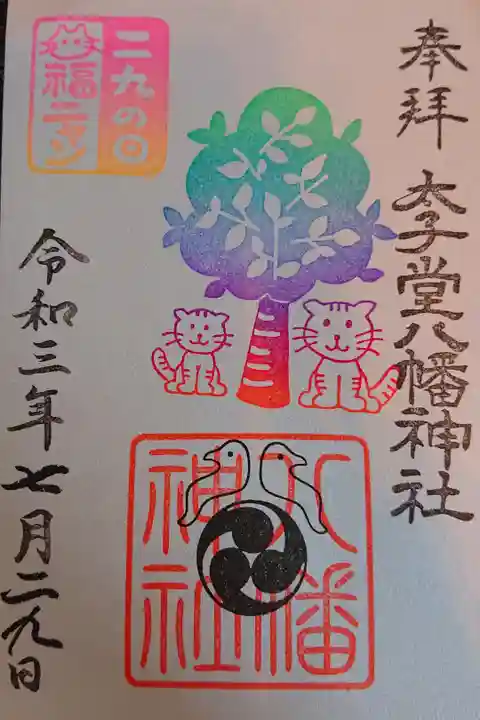 奉拝
太子堂八幡神社
二九の日
福ニャン
八幡
神社
令和三年七月二九日